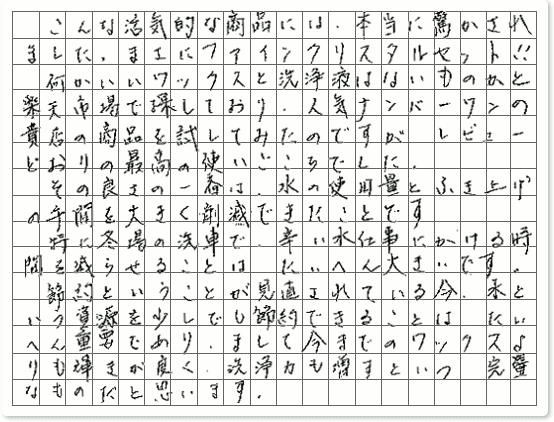 こんな活気的な商品には、本当に驚かされ
ました。まさにファインクリスタルセット!!
何かいいワックスと洗浄液はないものかと
楽天市場で探しており、人気ナンバーワンの
貴店の商品を試してみたのですが、レビュー
どおりの最高の使いごこちでした。
その良さの一番は、水の使用量とふき上げ
の手間を大きく削減できたことです
時に冬場の洗車では辛い水仕事にかける時
間を減らせることはたいへん大きいです。
節約ということが見直されている今、水と
いう資源を少しでも節約できることは、た
重要であり
輝きが良く、洗浄力も増すという完璧
なものだと思います。